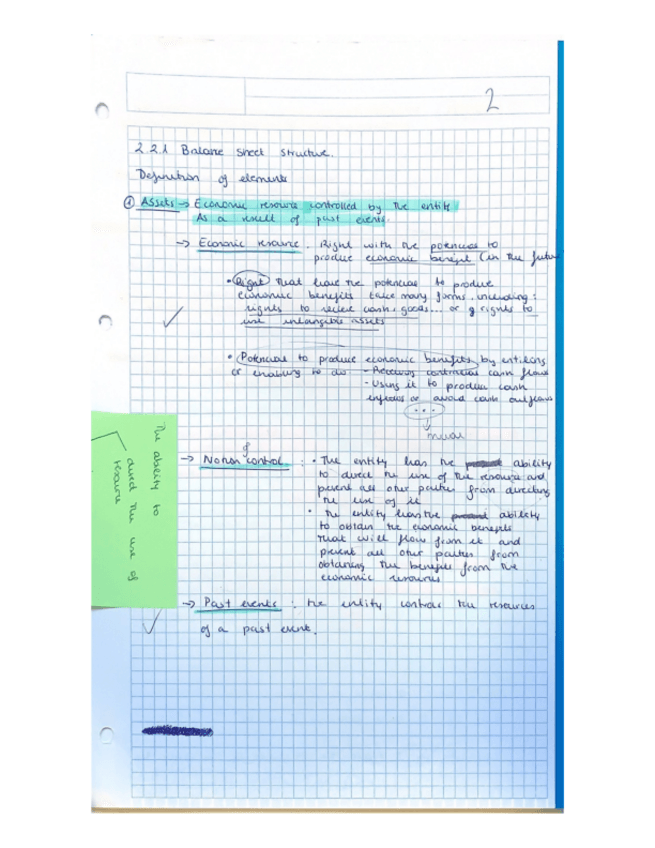 2
2.2.1 Balance sheet structure.
Definition of elements
① Assets → Economic resource controlled by the entity
As a result of past events.
→ Economic resource. Right with the potencial to
produce economic benefit (in the futu
• Right that have the potencial to produce
economic benefits take many forms, including:
rights to receive cash, goods... or rights to
use intangible assets
• Potencial to produce economic benefits by entitling
or enabling to do - Receiving contractual cash flows
- Using it to produce cash
inflows or avoid cash outflows
...
→ Notion of control : • The entity has the ability
to direct the use of the resource and
prevent all other parties from directing
the use of it
• The entity has the ability
to obtain the economic benefits
that will flow from it and
prevent all other parties from
obtaining the benefits from the
economic resources
The ability to
direct the use of
resource
→ Past events : the entity controls the resources
of a past event.